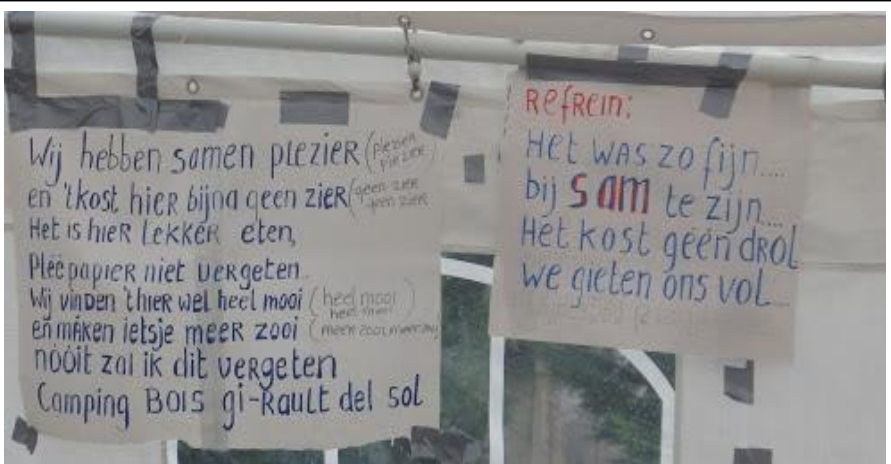 Wij hebben samen plezier (plezier
plezier)
en 'tkost hier bijna geen zier (geen zier
geen zier
Het is hier lekker eten,
Pleepapier niet vergeten..
Wij vinden 'thier wel heel mooi (heel mooi
heel mooi)
en maken ietsje meer zooi (meer zooi meer zooi)
nóóit zal ik dit vergeten
Camping BOIS gi-Rault del sol
Refrein:
Het was zo fijn....
bij sam te zijn....
Het kost géén drol
we gieten ons vol....